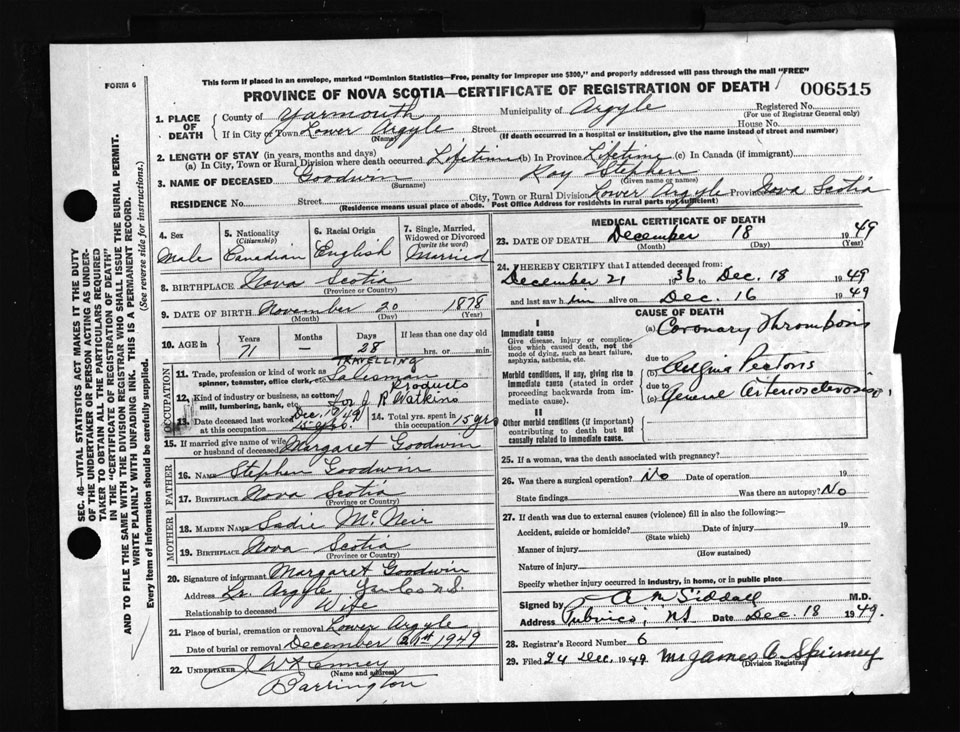 This form if placed in an envelope, marked "Dominion Statistics—Free, penalty for improper use $300," and properly addressed will pass through the mail "FREE"
FORM 6
PROVINCE OF NOVA SCOTIA—CERTIFICATE OF REGISTRATION OF DEATH
006515
1. PLACE OF DEATH County of Yarmouth Municipality of Argyle Registered No.
(For use of Registrar General only)
If in City or Town Lower Argyle Street House No.
(Name) (If death occurred in a hospital or institution, give the name instead of street and number)
2. LENGTH OF STAY (in years, months and days)
(a) In City, Town or Rural Division where death occurred Lifetime (b) In Province Lifetime (c) In Canada (if immigrant)
3. NAME OF DECEASED Goodwin Roy Stephen
(Surname) (Given name or names)
RESIDENCE No. Street City, Town or Rural Division Lower Argyle Province Nova Scotia
(Residence means usual place of abode. Post Office Address for residents in rural parts not sufficient)
4. Sex 5. Nationality 6. Racial Origin 7. Single, Married, Widowed or Divorced
(Citizenship) (write the word)
Male Canadian English Married
8. BIRTHPLACE Nova Scotia
(Province or Country)
9. DATE OF BIRTH November 20 1878
(Month) (Day) (Year)
10. AGE in Years Months Days If less than one day old
71 - 28 hrs. or min.
OCCUPATION
TRAVELLING
11. Trade, profession or kind of work as spinner, teamster, office clerk, Salesman
Products
12. Kind of industry or business, as cotton mill, lumbering, bank, etc. for J R Watkins
13. Date deceased last worked at this occupation Dec. 10/49
15 yrs.
14. Total yrs. spent in this occupation 15 yrs
15. If married give name of wife or husband of deceased Margaret Goodwin
FATHER
16. NAME Stephen Goodwin
17. BIRTHPLACE Nova Scotia
(Province or Country)
MOTHER
18. MAIDEN NAME Sadie McNeir
19. BIRTHPLACE Nova Scotia
(Province or Country)
20. Signature of informant Margaret Goodwin
Address Lr. Argyle Yar Co N.S.
Relationship to deceased Wife
21. Place of burial, cremation or removal Lower Argyle
Date of burial or removal December 21st 1949
22. UNDERTAKER J W Kenney
(Name and address)
Barrington
MEDICAL CERTIFICATE OF DEATH
23. DATE OF DEATH December 18 1949
(Month) (Day) (Year)
24. I HEREBY CERTIFY that I attended deceased from:
December 21 1936 to Dec. 18 1949
and last saw him alive on Dec. 16 1949
CAUSE OF DEATH
I
Immediate cause
Give disease, injury or complication which caused death, not the mode of dying, such as heart failure, asphyxia, asthenia, etc.
(a) Coronary Thrombosis
due to
Morbid conditions, if any, giving rise to immediate cause (stated in order proceeding backwards from immediate cause).
(b) Angina Pectoris
due to
(c) General Arteriosclerosis
II
Other morbid conditions (if important) contributing to death but not causally related to immediate cause.
25. If a woman, was the death associated with pregnancy?
26. Was there a surgical operation? No Date of operation 19
State findings Was there an autopsy? No
27. If death was due to external causes (violence) fill in also the following:—
Accident, suicide or homicide? Date of injury 19
(State which)
Manner of injury
(How sustained)
Nature of injury
Specify whether injury occurred in industry, in home, or in public place
Signed by A M Siddall M.D.
Address Pubnico, NS Date Dec. 18 1949
28. Registrar's Record Number 6
29. Filed 24 Dec. 1949 Mrs James A. Spinney
(Division Registrar)
SEC. 46—VITAL STATISTICS ACT MAKES IT THE DUTY
OF THE UNDERTAKER OR PERSON ACTING AS UNDER-
TAKER TO OBTAIN ALL THE PARTICULARS REQUIRED
IN THE "CERTIFICATE OF REGISTRATION OF DEATH"
AND TO FILE THE SAME WITH THE DIVISION REGISTRAR WHO SHALL ISSUE THE BURIAL PERMIT.
WRITE PLAINLY WITH UNFADING INK. THIS IS A PERMANENT RECORD.
Every item of information should be carefully supplied. (See reverse side for instructions.)